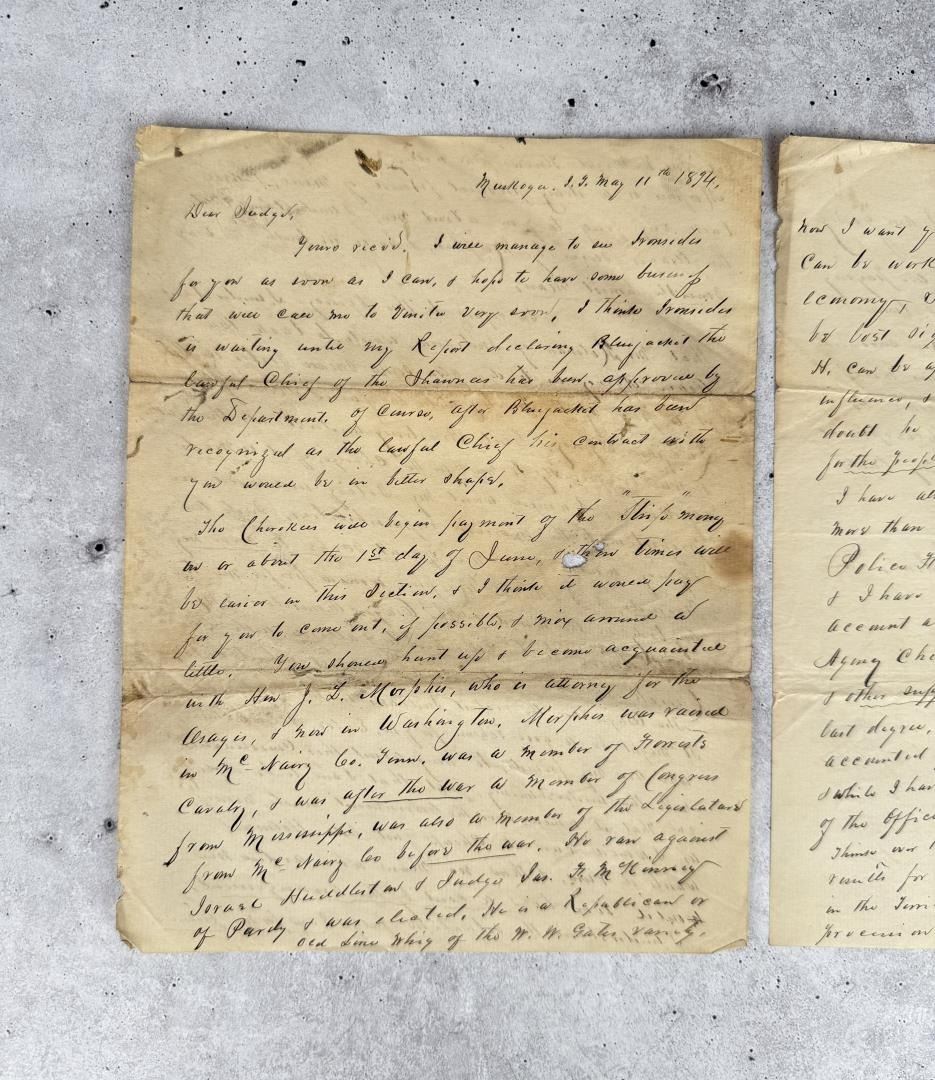 Muskogee. I.T. May 11th 1894.
Dear Judge,
Yours rec'd. I will manage to see Ironsides
for you as soon as I can, & hope to have some business
that will call me to Vinita very soon, I think Ironsides
is waiting until my Report declaring Bluejacket the
lawful Chief of the Shawnees has been approved by
the Department. Of Course, after Bluejacket has been
recognized as the lawful Chief his contract with
you would be in better shape.
The Cherokees will begin payment of the "Strip" money
on or about the 1st day of June, & then times will
be easier in this Section, & I think it would pay
for you to come out, if possible, & mix around a
little. You should hunt up & become acquainted
with Hon J. L. Morphis, who is attorney for the
Osages, & now in Washington. Morphis was raised
in Mc-Nairy Co. Tenn. was a member of Forrests
Cavalry, & was after the war a member of Congress
from Mississippi, was also a member of the Legislature
from Mc Nairy Co before the war. He ran against
Israel Huddleston & Judge Jas. F. McKinney
of Purdy & was elected. He is a Republican or
old Line Whig of the W. W. Gates variety.
now I want y
Can be work
economy,
be lost sig
H. can be a
influence, &
doubt he
for the people
I have al
more than
Police
& I have
account a
Agency Che
& other supp
last degree,
accounted
& while I hav
of the Offic
Think over
results for
in the Terri
procession